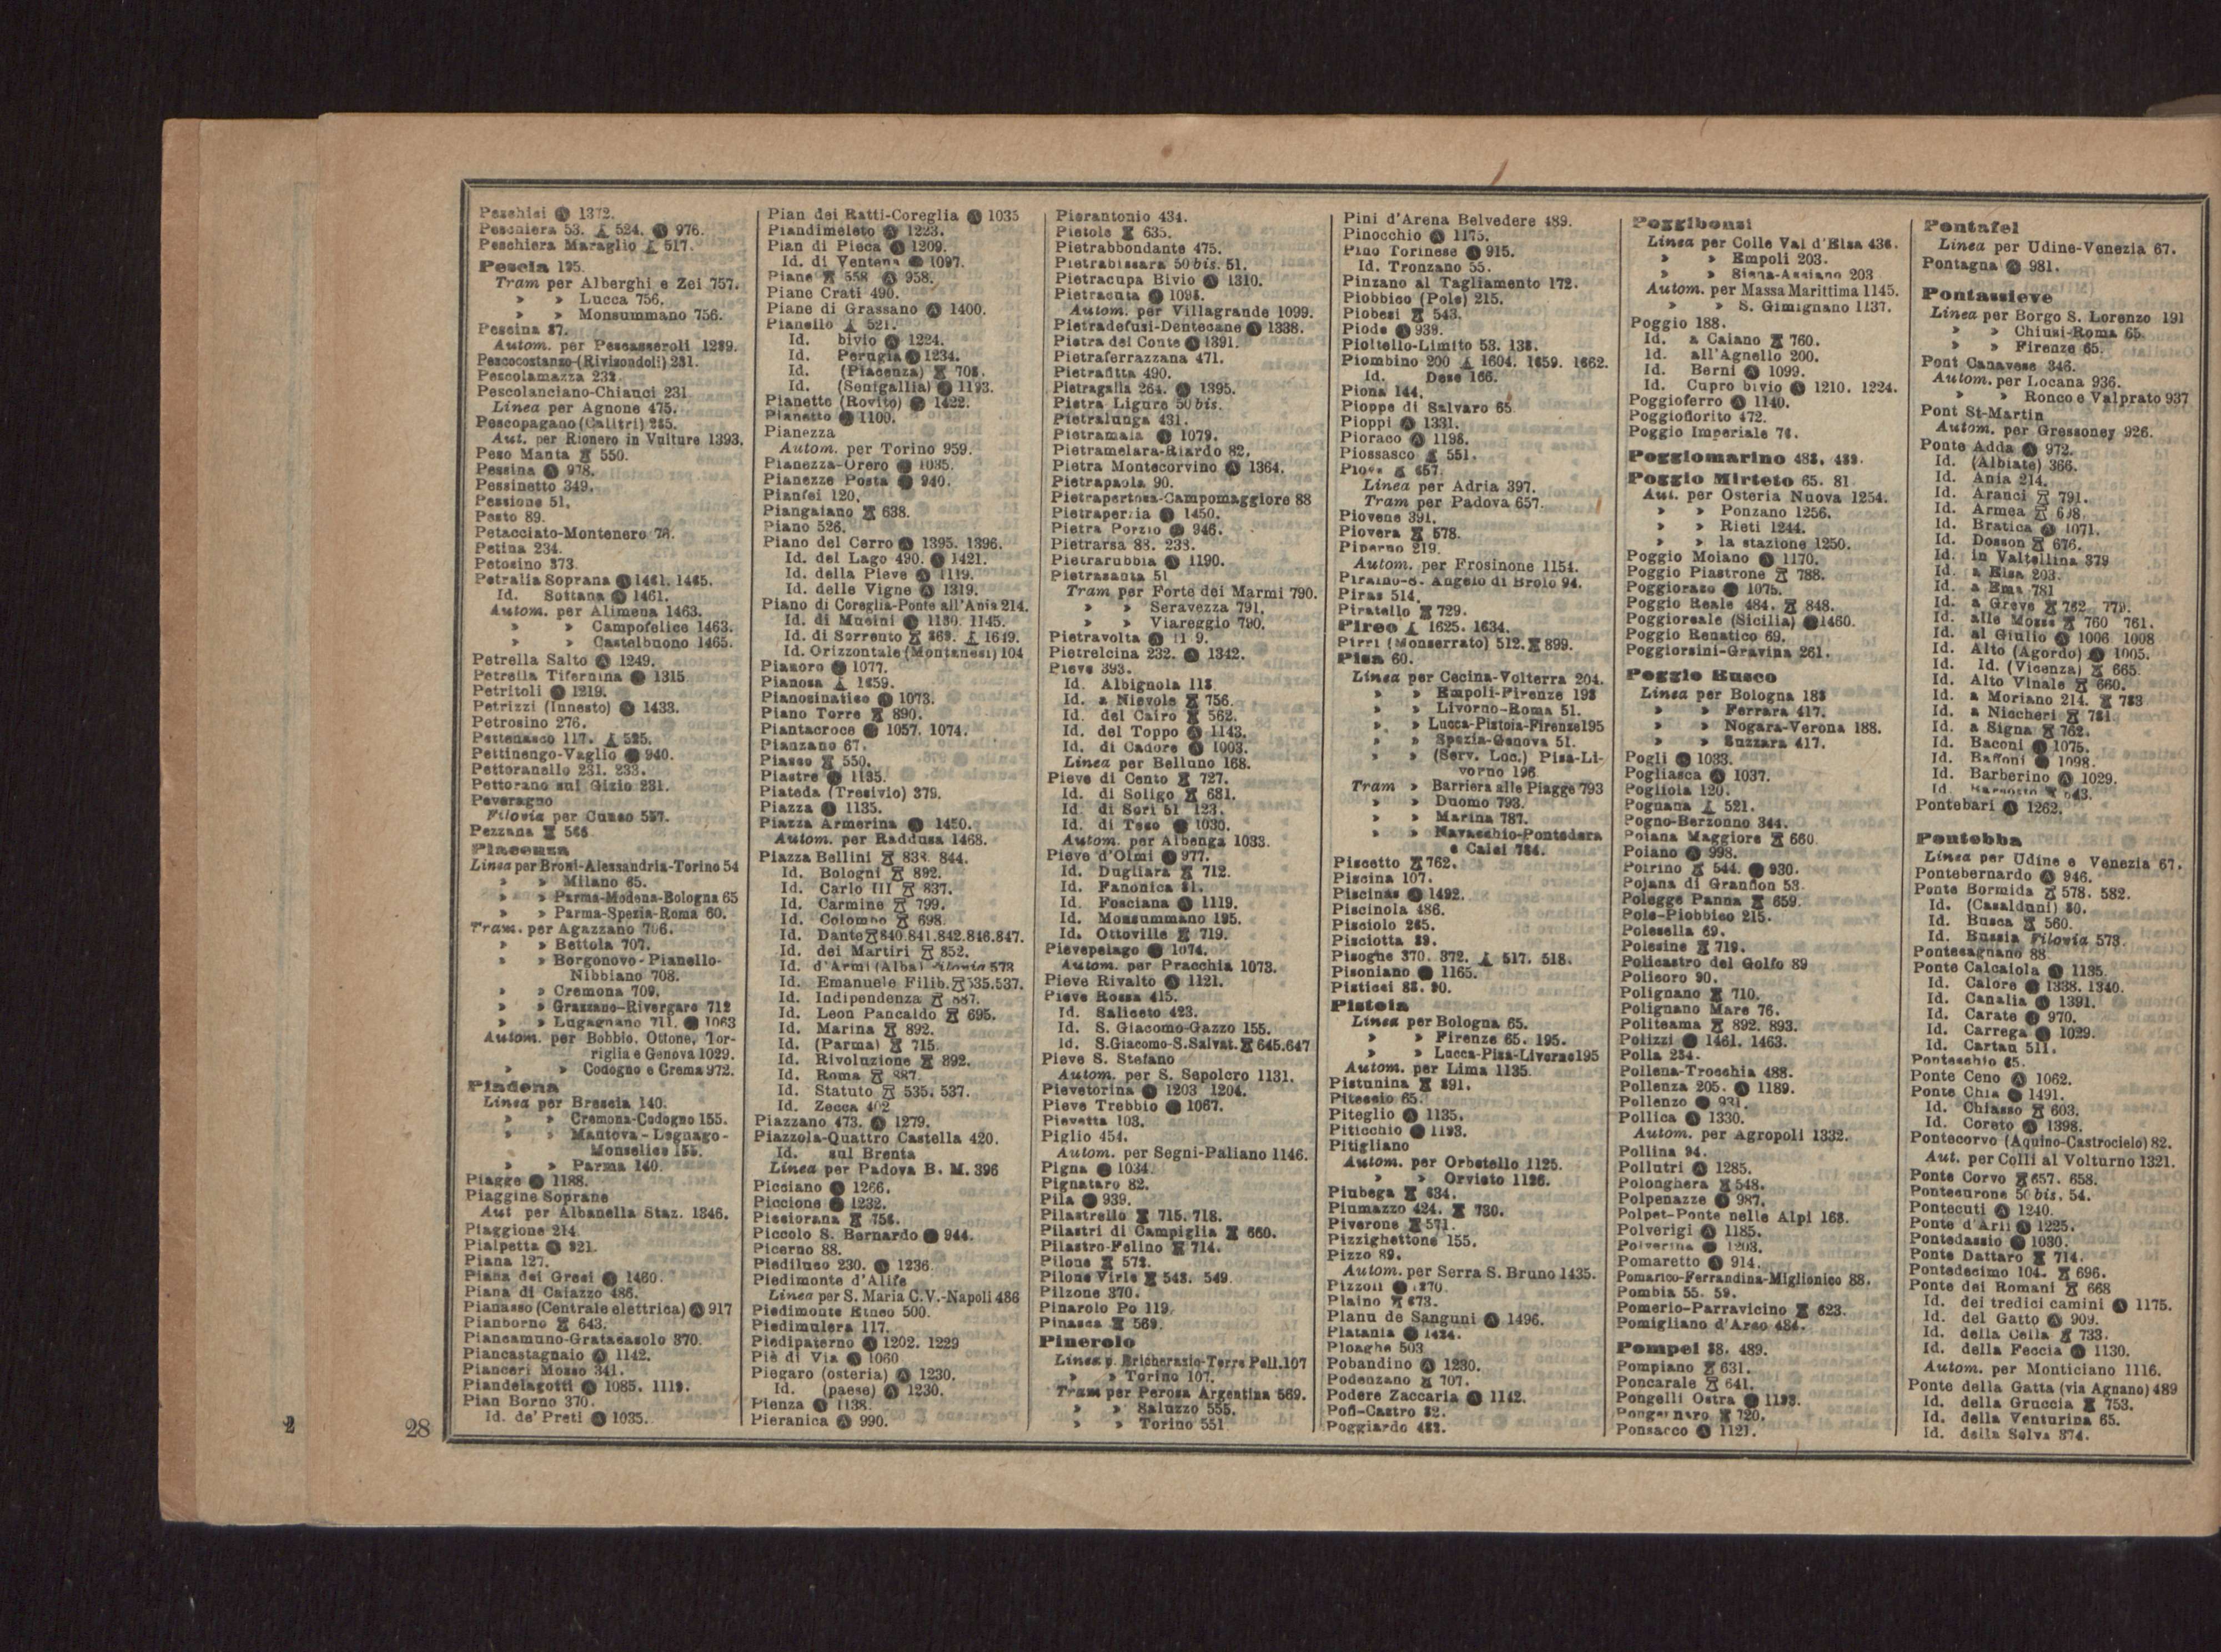 Peschici Ⓐ 1372.
Peschiera 53. 524. Ⓐ 976.
Peschiera Maraglio 517.
Pescia 195.
Tram per Alberghi e Zei 757.
» » Lucca 756.
» » Monsummano 756.
Pescina 87.
Autom. per Pescasseroli 1289.
Pescocostanzo (Rivisondoli) 231.
Pescolamazza 232.
Pescolanciano-Chiauci 231
Linea per Agnone 475.
Pescopagano (Calitri) 265.
Aut. per Rionero in Vulture 1393.
Peso Manta 550.
Pessina Ⓐ 978.
Pessinetto 349.
Pessione 51.
Pesto 89.
Petacciato-Montenero 76.
Petina 234.
Petosino 373.
Petralia Soprana Ⓐ 1461. 1465.
Id. Sottana Ⓐ 1461.
Autom. per Alimena 1463.
» » Campofelice 1463.
» » Castelbuono 1465.
Petrella Salto Ⓐ 1249.
Petrella Tifernina Ⓐ 1315
Petritoli Ⓐ 1219.
Petrizzi (Innesto) Ⓐ 1433.
Petrosino 276.
Pettenasco 117. 525.
Pettinengo-Vaglio Ⓐ 940.
Pettoranello 231. 233.
Pettorano sul Gizio 231.
Peveragno
Filovia per Cuneo 557.
Pezzana 566
Piacenza
Linea per Broni-Alessandria-Torino 54
» » Milano 65.
» » Parma-Modena-Bologna 65
» » Parma-Spezia-Roma 60.
Tram. per Agazzano 706.
» » Bettola 707.
» » Borgonovo-Pianello-
Nibbiano 708.
» » Cremona 709.
» » Grazzano-Rivergaro 712
» » Lugagnano 711. Ⓐ 1063
Autom. per Bobbio, Ottone, Tor-
riglia e Genova 1029.
» » Codogno e Crema 972.
Piadena
Linea per Brescia 140.
» » Cremona-Codogno 155.
» » Mantova-Legnago-
Monselice 155.
» » Parma 140.
Piagge Ⓐ 1188.
Piaggine Soprane
Aut per Albanella Staz. 1346.
Piaggione 214
Pialpetta Ⓐ 921.
Piana 127.
Piana dei Greci Ⓐ 1460.
Piana di Caiazzo 486.
Pianasso (Centrale elettrica) Ⓐ 917
Pianborno 643.
Piancamuno-Gratacasolo 370.
Piancastagnaio Ⓐ 1142.
Pianceri Mosso 341.
Piandelagotti Ⓐ 1085. 1119.
Pian Borno 370.
Id. de' Preti Ⓐ 1035.
Pian dei Ratti-Coreglia Ⓐ 1035
Piandimeleto Ⓐ 1223.
Pian di Pieca Ⓐ 1209.
Id. di Ventena Ⓐ 1097.
Piane 558 Ⓐ 958.
Piane Crati 490.
Piane di Grassano Ⓐ 1400.
Pianello 521.
Id. bivio Ⓐ 1224.
Id. Perugia Ⓐ 1234.
Id. (Piacenza) 708.
Id. (Senigallia) Ⓐ 1193.
Pianette (Rovito) Ⓐ 1422.
Pianetto Ⓐ 1100.
Pianezza
Autom. per Torino 959.
Pianezza-Orero Ⓐ 1035.
Pianezze Posta Ⓐ 940.
Pianfei 120.
Piangaiano 638.
Piano 526.
Piano del Cerro Ⓐ 1395. 1396.
Id. del Lago 490. Ⓐ 1421.
Id. della Pieve Ⓐ 1119.
Id. delle Vigne Ⓐ 1319.
Piano di Coreglia-Ponte all'Ania 214.
Id. di Mucini Ⓐ 1130. 1145.
Id. di Sorrento 869. 1649.
Id. Orizzontale (Montanesi) 104
Pianoro Ⓐ 1077.
Pianosa 1659.
Pianosinatico Ⓐ 1073.
Piano Torre 890.
Piantacroce Ⓐ 1057. 1074.
Pianzano 67.
Piasco 550.
Piastre Ⓐ 1135.
Piateda (Tresivio) 379.
Piazza Ⓐ 1135.
Piazza Armerina Ⓐ 1450.
Autom. per Raddusa 1468.
Piazza Bellini 838. 844.
Id. Bologni 892.
Id. Carlo III 837.
Id. Carmine 799.
Id. Colombo 698
Id. Dante 840.841.842.846.847.
Id. dei Martiri 852.
Id. d'Armi (Alba) Filovia 573
Id. Emanuele Filib. 535.537.
Id. Indipendenza 887.
Id. Leon Pancaldo 695.
Id. Marina 892.
Id. (Parma) 715
Id. Rivoluzione 892.
Id. Roma 887.
Id. Statuto 535. 537.
Id. Zecca 402
Piazzano 473. Ⓐ 1279.
Piazzola-Quattro Castella 420.
Id. sul Brenta
Linea per Padova B. M. 396
Picciano Ⓐ 1266.
Piccione Ⓐ 1232.
Picciorana 756.
Piccolo S. Bernardo Ⓐ 944.
Picerno 88.
Piediluco 230. Ⓐ 1236.
Piedimonte d'Alife
Linea per S. Maria C.V.-Napoli 486
Piedimonte Etneo 500.
Piedimulera 117.
Piedipaterno Ⓐ 1202. 1229
Piè di Via Ⓐ 1060
Piegaro (osteria) Ⓐ 1230.
Id. (paese) Ⓐ 1230.
Pienza Ⓐ 1138.
Pieranica Ⓐ 990.
Pierantonio 434.
Pietole 635.
Pietrabbondante 475.
Pietrabissara 50 bis. 51.
Pietracupa Bivio Ⓐ 1310.
Pietracuta Ⓐ 1098.
Autom. per Villagrande 1099.
Pietradefusi-Dentecane Ⓐ 1338.
Pietra del Conte Ⓐ 1391.
Pietraferrazzana 471.
Pietrafitta 490.
Pietragalla 264. Ⓐ 1395.
Pietra Ligure 50 bis.
Pietralunga 431.
Pietramala Ⓐ 1079.
Pietramelara-Riardo 82.
Pietra Montecorvino Ⓐ 1364.
Pietrapaola 90.
Pietrapertosa-Campomaggiore 88
Pietraperzia Ⓐ 1450.
Pietra Porzio Ⓐ 946.
Pietrarsa 83. 233.
Pietrarubbia Ⓐ 1190.
Pietrasanta 51
Tram per Forte dei Marmi 790.
» » Seravezza 791.
» » Viareggio 790.
Pietravolta Ⓐ
Pietrelcina 232. Ⓐ 1342.
Pieve 393.
Id. Albignola 118
Id. a Nievole 756.
Id. del Cairo 562.
Id. del Toppo Ⓐ 1143.
Id. di Cadore Ⓐ 1003.
Linea per Belluno 168.
Pieve di Cento 727.
Id. di Soligo 681.
Id. di Sori 51 123.
Id. di Teco Ⓐ 1030.
Autom. per Albenga 1033.
Pieve d'Olmi Ⓐ 977.
Id. Dugliara 712.
Id. Fanonica 81.
Id. Fosciana Ⓐ 1119.
Id. Monsummano 195.
Id. Ottoville 719.
Pievepelago Ⓐ 1074.
Autom. per Pracchia 1073.
Pieve Rivalto Ⓐ 1121.
Pieve Rossa 415.
Id. Saliceto 423.
Id. S. Giacomo-Gazzo 155.
Id. S.Giacomo-S.Salvat. 645.647
Pieve S. Stefano
Autom. per S. Sepolcro 1131.
Pievetorina Ⓐ 1203 1204.
Pieve Trebbio Ⓐ 1067.
Pievetta 103.
Piglio 454.
Autom. per Segni-Paliano 1146.
Pigna Ⓐ 1034.
Pignataro 82.
Pila Ⓐ 939.
Pilastrello 715. 718.
Pilastri di Campiglia 660.
Pilastro-Felino 714.
Pilone 572.
Pilone Virle 548. 549.
Pilzone 370.
Pinarolo Po 119.
Pinasca 569.
Pinerolo
Linea p. Bricherasio-Torre Pell.107
» » Torino 107.
Tram per Perosa Argentina 569.
» » Saluzzo 555.
» » Torino 551
Pini d'Arena Belvedere 489.
Pinocchio Ⓐ 1175.
Pino Torinese Ⓐ 915.
Id. Tronzano 55.
Pinzano al Tagliamento 172.
Piobbico (Pole) 215.
Piobesi 543.
Piode Ⓐ 939.
Pioltello-Limito 53. 138.
Piombino 200 1604. 1659. 1662.
Id. Dese 166.
Piona 144.
Pioppe di Salvaro 65
Pioppi Ⓐ 1331.
Pioraco Ⓐ 1198.
Piossasco 551.
Piove 657.
Linea per Adria 397.
Tram per Padova 657.
Piovene 391.
Piovera 578.
Piperno 219.
Autom. per Frosinone 1154.
Piraino-S. Angelo di Brolo 94.
Piras 514.
Piratello 729.
Pireo 1625. 1634.
Pirri (Monserrato) 512. 899.
Pisa 60.
Linea per Cecina-Volterra 204.
» » Empoli-Firenze 198
» » Livorno-Roma 51.
» » Lucca-Pistoia-Firenze195
» » Spezia-Genova 51.
» » (Serv. Loc.) Pisa-Li-
vorno 196
Tram » Barriera alle Piagge 793
» » Duomo 793.
» » Marina 787.
» » Navacchio-Pontedera
e Calci 784.
Piscetto 762.
Piscina 107.
Piscinas Ⓐ 1492.
Piscinola 486.
Pisciolo 265.
Pisciotta 89.
Pisogne 370. 372. 517. 518.
Pisoniano Ⓐ 1165.
Pisticci 88. 90.
Pistoia
Linea per Bologna 65.
» » Firenze 65. 195.
» » Lucca-Pisa-Livorno195
Autom. per Lima 1135.
Pistunina 891.
Pitecchio 65.
Piteglio Ⓐ 1135.
Piticchio Ⓐ 1193.
Pitigliano
Autom. per Orbetello 1125.
» » Orvieto 1126.
Piubega 634.
Piumazzo 424. 730.
Piverone 571.
Pizzighettone 155.
Pizzo 89.
Autom. per Serra S. Bruno 1435.
Pizzoli Ⓐ 1270.
Plaino 673.
Planu de Sanguni Ⓐ 1496.
Platania Ⓐ 1424.
Ploaghe 503
Pobandino Ⓐ 1230.
Podenzano 707.
Podere Zaccaria Ⓐ 1142.
Pofi-Castro 82.
Poggiardo 482.
Poggibonsi
Linea per Colle Val d'Elsa 436.
» » Empoli 203.
» » Siena-Asciano 203
Autom. per Massa Marittima 1145.
» » S. Gimignano 1137.
Poggio 188.
Id. a Caiano 760.
Id. all'Agnello 200.
Id. Berni Ⓐ 1099.
Id. Cupro bivio Ⓐ 1210. 1224.
Poggioferro Ⓐ 1140.
Poggiofiorito 472.
Poggio Imperiale 76.
Poggiomarino 488. 489.
Poggio Mirteto 65. 81
Aut. per Osteria Nuova 1254.
» » Ponzano 1256.
» » Rieti 1244.
» » la stazione 1250.
Poggio Moiano Ⓐ 1170.
Poggio Piastrone 788.
Poggiorazo Ⓐ 1075.
Poggio Reale 484. 848.
Poggioreale (Sicilia) Ⓐ 1460.
Poggio Renatico 69.
Poggiorsini-Gravina 261.
Poggio Rusco
Linea per Bologna 188
» » Ferrara 417.
» » Nogara-Verona 188.
» » Suzzara 417.
Pogli Ⓐ 1033.
Pogliasca Ⓐ 1037.
Pogliola 120.
Pognana 521.
Pogno-Berzonno 344.
Poiana Maggiore 660
Poiano Ⓐ 998.
Poirino 544. Ⓐ 930.
Pojana di Granfion 53
Polegge Panna 659.
Pole-Piobbico 215.
Polesella 69.
Polesine 719.
Policastro del Golfo 89
Policoro 90.
Polignano 710.
Polignano Mare 76.
Politeama 892. 893.
Polizzi Ⓐ 1461. 1463.
Polla 234.
Pollena-Trocchia 488.
Pollenza 205. Ⓐ 1189.
Pollenzo Ⓐ 931.
Pollica Ⓐ 1330.
Autom. per Agropoli 1332.
Pollina 94.
Pollutri Ⓐ 1285.
Polonghera 548.
Polpenazze Ⓐ 987.
Polpet-Ponte nelle Alpi 168.
Polverigi Ⓐ 1185.
Polverina Ⓐ 1203.
Pomaretto Ⓐ 914.
Pomarico-Ferrandina-Miglionico 88.
Pombia 55. 59.
Pomerio-Parravicino 623.
Pomigliano d'Arco 484.
Pompei 88. 489.
Pompiano 631.
Poncarale 641.
Pongelli Ostra Ⓐ 1193.
720.
Ponsacco Ⓐ 1121.
Pontafel
Linea per Udine-Venezia 67.
Pontagna Ⓐ 981.
Pontassieve
Linea per Borgo S. Lorenzo 191
» » Chiusi-Roma 65.
» » Firenze 65.
Pont Canavese 346.
Autom. per Locana 936.
» » Ronco e Valprato 937
Pont St-Martin
Autom. per Gressoney 926.
Ponte Adda Ⓐ 972.
Id. (Albiate) 366.
Id. Ania 214.
Id. Aranci 791.
Id. Armea 698.
Id. Bratica Ⓐ 1071.
Id. Dosson 676.
Id. in Valtellina 379
Id. a Elsa 203.
Id. a Ema 781
Id. a Greve 762 779.
Id. alle Mosse 760 761.
Id. al Giulio Ⓐ 1006 1008
Id. Alto (Agordo) Ⓐ 1005.
Id. Id. (Vicenza) 665.
Id. Alto Vinale 660.
Id. a Moriano 214. 783
Id. a Niccheri 781.
Id. a Signa 762.
Id. Baconi Ⓐ 1075.
Id. Baffoni Ⓐ 1098.
Id. Barberino Ⓐ 1029.
Id. 643.
Pontebari Ⓐ 1262.
Pontebba
Linea per Udine e Venezia 67.
Pontebernardo Ⓐ 946.
Ponte Bormida 578. 582.
Id. (Casalduni) 80.
Id. Busca 560.
Id. Bussia Filovia 573.
Pontecagnano 88
Ponte Calcaiola Ⓐ 1135.
Id. Calore Ⓐ 1338. 1340.
Id. Canalia Ⓐ 1391.
Id. Carate Ⓐ 970.
Id. Carrega Ⓐ 1029.
Id. Cartau 511.
Pontecchio 65.
Ponte Ceno Ⓐ 1062.
Ponte Chia Ⓐ 1491.
Id. Chiasso 603.
Id. Coreto Ⓐ 1398.
Pontecorvo (Aquino-Castrocielo) 82.
Aut. per Colli al Volturno 1321.
Ponte Corvo 657. 658.
Pontecurone 50 bis. 54.
Pontecuti Ⓐ 1240.
Ponte d'Arli Ⓐ 1225.
Pontedassio Ⓐ 1030.
Ponte Dattaro 714.
Pontedecimo 104. 696.
Ponte dei Romani 668
Id. dei tredici camini Ⓐ 1175.
Id. del Gatto Ⓐ 909.
Id. della Cella 733.
Id. della Feccia Ⓐ 1130.
Autom. per Monticiano 1116.
Ponte della Gatta (via Agnano) 489
Id. della Gruccia 753.
Id. della Venturina 65.
Id. della Selva 374.
2
28